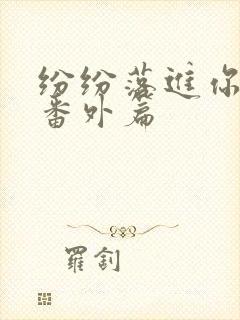 纷纷落进你
番外篇
羅釗